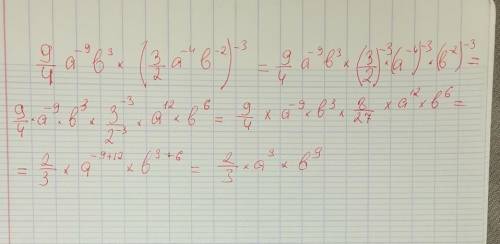 9/4 a⁻⁹ в³ × (3/2 a⁻⁴ в⁻²)⁻³ = 9/4 a⁻⁹ в³ × (3/2)⁻³ × (a⁻⁴)⁻³ × (в⁻²)⁻³ =
9/4 × a⁻⁹ × в³ × 3⁻³/2⁻³ × a¹² × в⁶ = 9/4 × a⁻⁹ × в³ × 8/27 × a¹² × в⁶ =
= 2/3 × a⁻⁹⁺¹² × в³⁺⁶ = 2/3 × a³ × в⁹